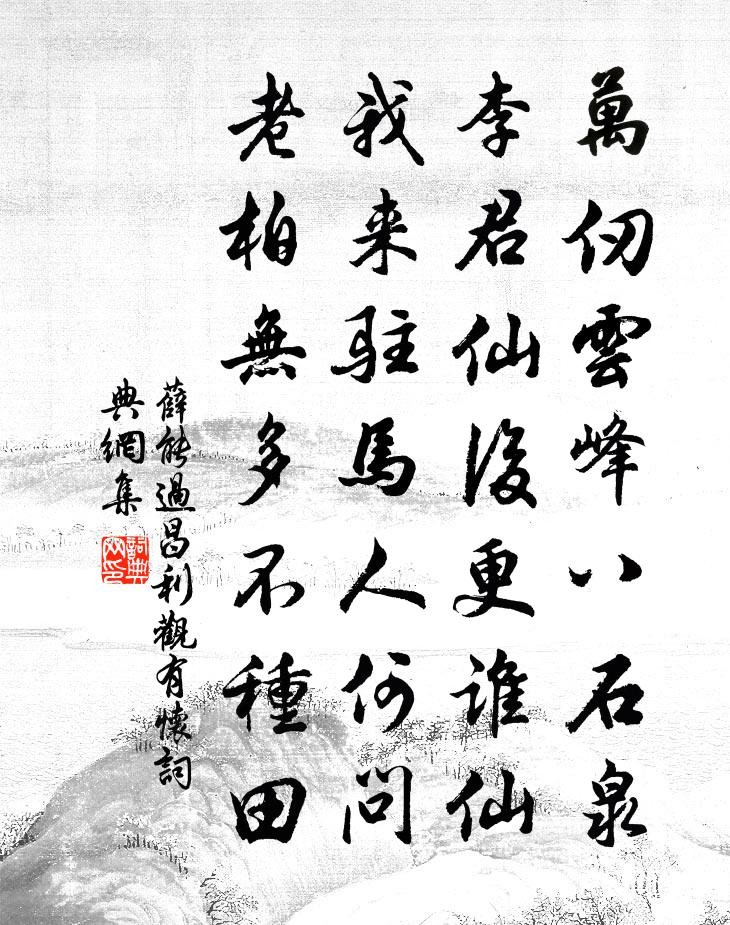 萬仞雲峰八石泉
李君仙後更誰仙
我来駐馬人何問
老柏無多不種田
薛能過昌利觀有懷詞
典網集
詞典网印